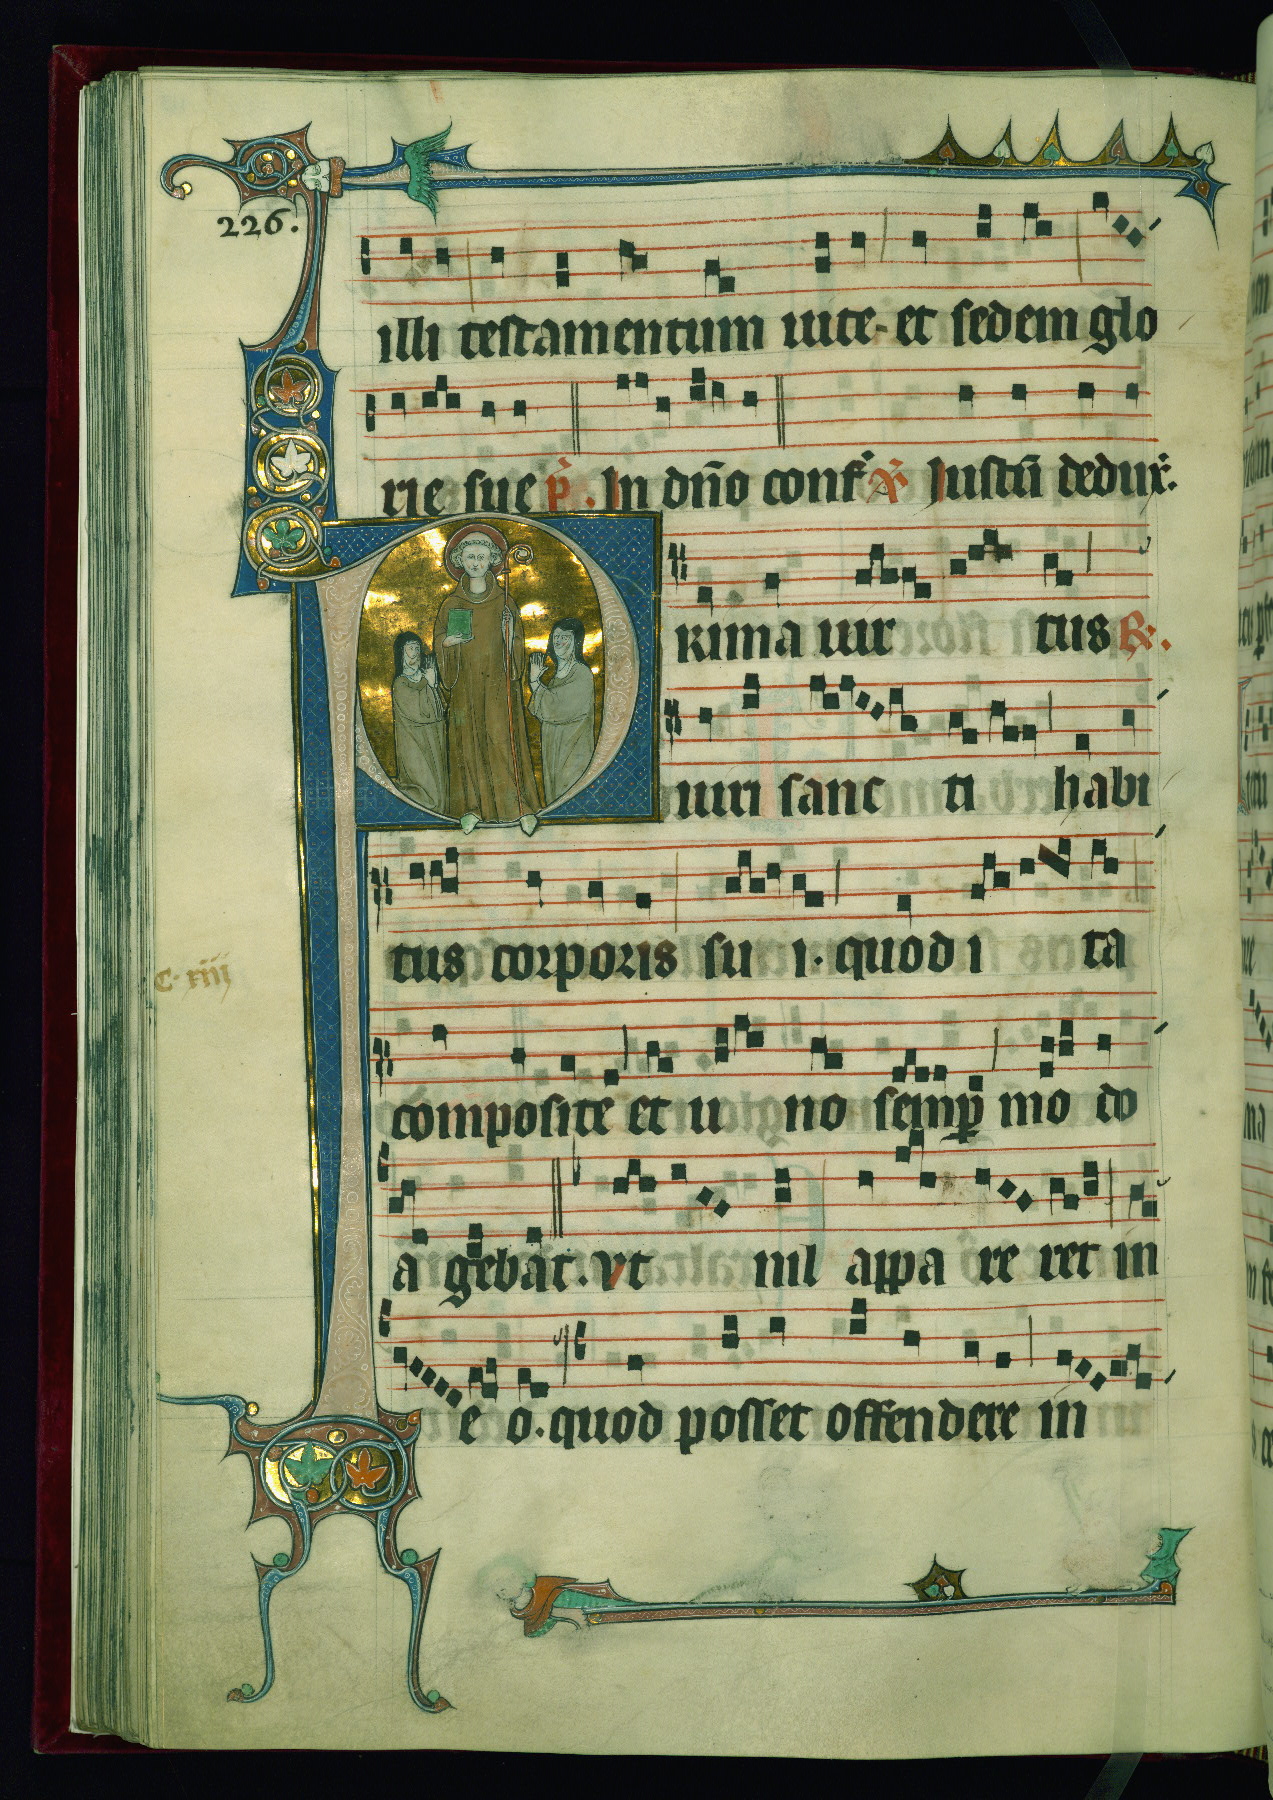 226.
illi testamentum uite. et sedem glo
rie sue p̄. In dño conf. ꝟ. Iustū dedux:
PRima uir tus ℟.
uiri sanc ti habi
tus corporis su i. quod i ta
C. xiiij
composite et u no semꝑ mo do
a gebat. vt nil appa re ret in
e o. quod posset offendere in